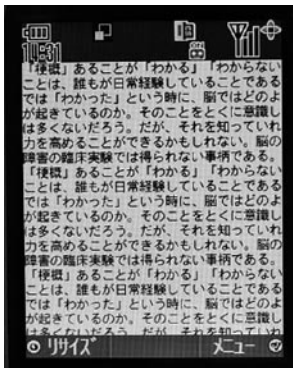 14:31
「梗概」あることが「わかる」「わからない
ことは、誰もが日常経験していることである
では「わかった」という時に、脳ではどのよ
が起きているのか。そのことをとくに意識し
は多くないだろう。だが、それを知っていれ
力を高めることができるかもしれない。脳の
障害の臨床実験では得られない事柄である。
「梗概」あることが「わかる」「わからない
ことは、誰もが日常経験していることである
では「わかった」という時に、脳ではどのよ
が起きているのか。そのことをとくに意識し
は多くないだろう。だが、それを知っていれ
力を高めることができるかもしれない。脳の
障害の臨床実験では得られない事柄である。
「梗概」あることが「わかる」「わからない
ことは、誰もが日常経験していることである
では「わかった」という時に、脳ではどのよ
が起きているのか。そのことをとくに意識し
は多くないだろう。だが、それを知っていれ
リサイズ メニュー